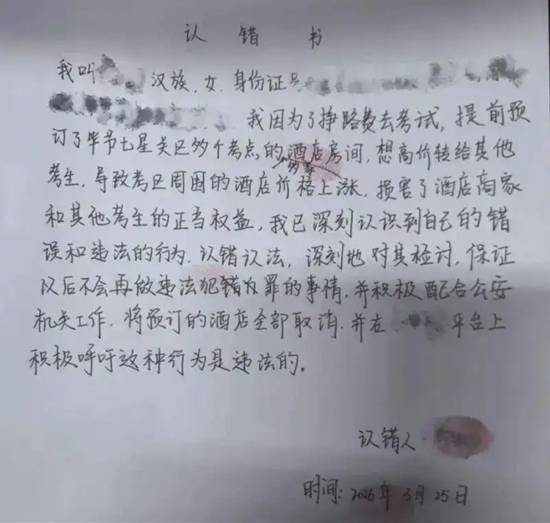 认错书
我叫 汉族,女,身份证号
我因为了挣路费去考试,提前预
订了毕节七星关区多个考点的多家酒店房间,想高价转给其他
考生,导致考区周围的酒店价格上涨,损害了酒店商家
和其他考生的正当权益,我已深刻认识到自己的错
误和违法的行为.认错认法,深刻地对其检讨,保证
以后不会再做违法犯罪的事情,并积极配合公安
机关工作.将预订的酒店全部取消.并在 平台上
积极呼吁这种行为是违法的。
认错人:
时间:2026年3月25日